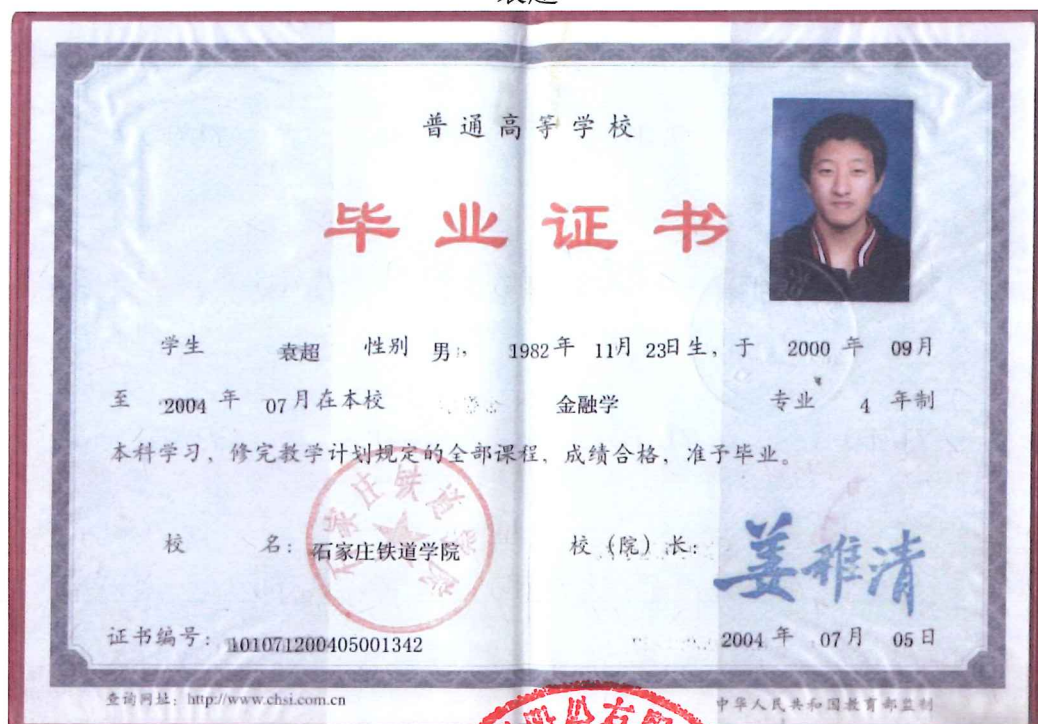 普通高等学校
毕业证书
学生 袁超 性别 男, 1982年 11月 23日生，于 2000 年 09月
至 2004 年 07月在本校 金融学 专业 4 年制
本科学习，修完教学计划规定的全部课程，成绩合格，准予毕业。
校 名：石家庄铁道学院 校（院）长：
石家庄铁道学院
证书编号：101071200405001342 2004 年 07月 05日
查询网址：http://www.chsi.com.cn 中华人民共和国教育部监制
股份有限